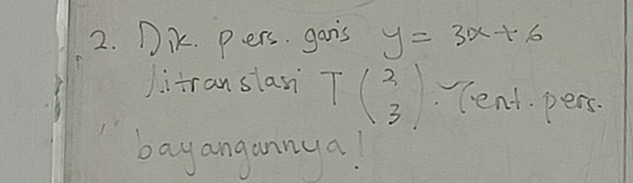 2. Dik. pers. garis y = 3x + 6
ditranslasi T (2 3). Tent. pers.
bayangannya!